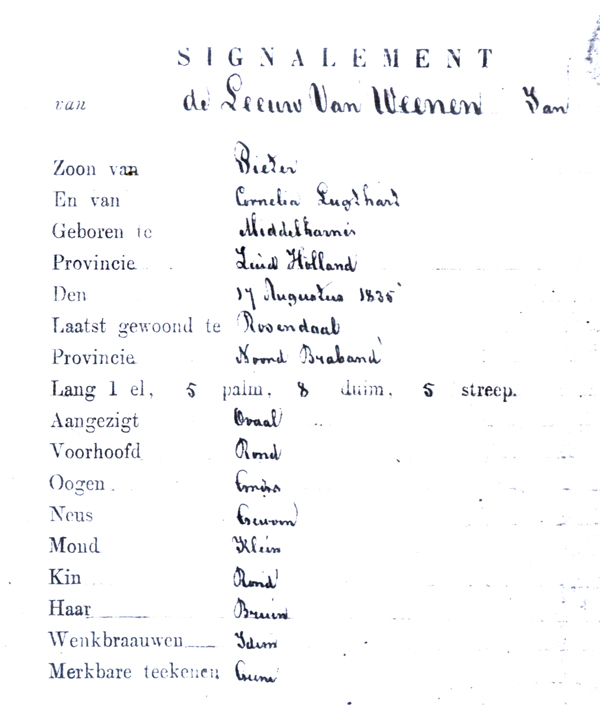 SIGNALEMENT
van de Leeuw Van Weenen Jan
Zoon van Pieter
En van Cornelia Lugthart
Geboren te Middelharnis
Provincie Zuid Holland
Den 17 Augustus 1835
Laatst gewoond te Rosendaal
Provincie Noord Braband
Lang 1 el, 5 palm, 8 duim, 5 streep.
Aangezigt Ovaal
Voorhoofd Rond
Oogen Grijs
Neus Gewoon
Mond Klein
Kin Rond
Haar Bruin
Wenkbraauwen Idem
Merkbare teekenen Geene